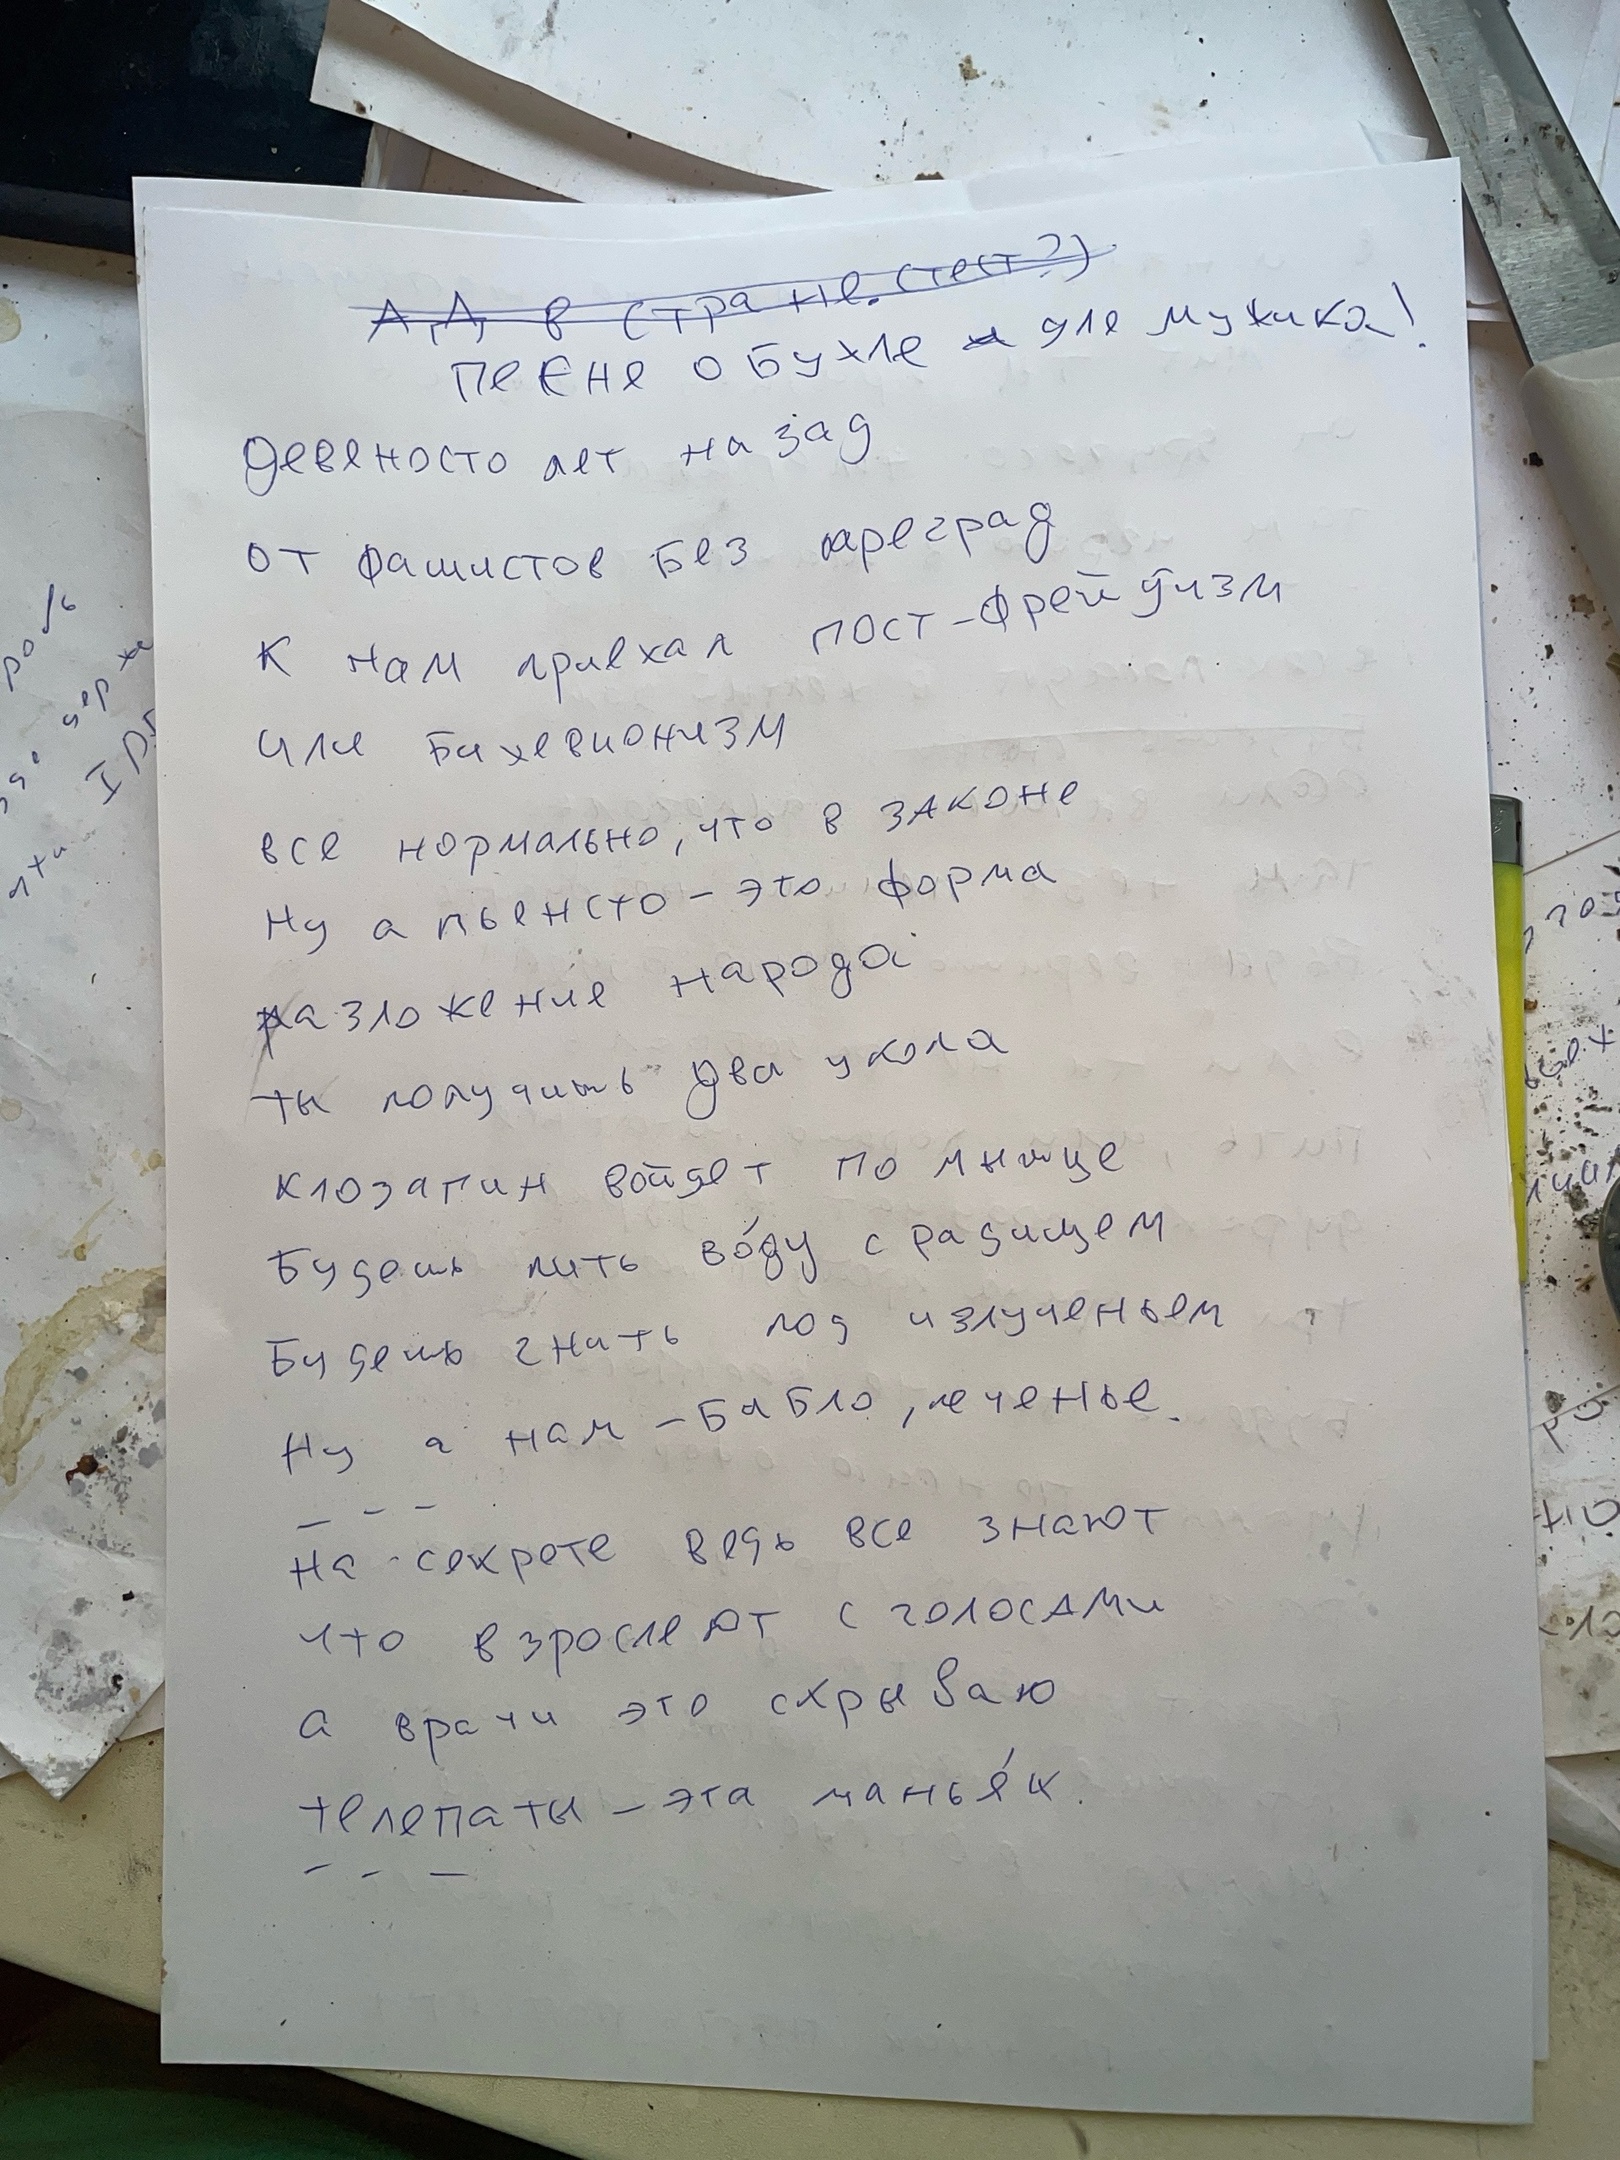 А,Д в стране. (тест?)
песне о Бухле для мужика!
Девеносто лет назад
от фашистов без преград
к нам приехал пост-фрейдизм
или Бихевионизм
все нормально, что в законе
Ну а пьенсто - это форма
разложение народа
ты получишь два укола
клозапин войдет по мышце
Будешь пить во́ду с радищем
Будешь гнить под излученьем
Ну а нам - Бабло, печенье.
- - -
На секрете ведь все знают
что взрослеют с голосами
а врачи это скрываю
телепаты - эта манье́к.
- - -
роль
IDE